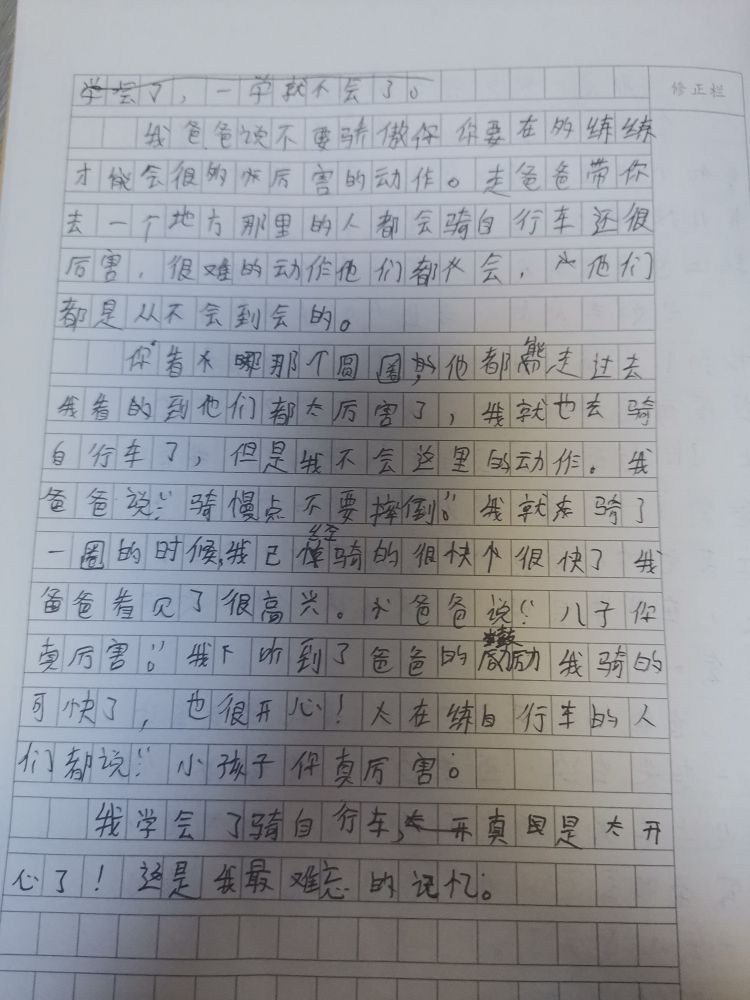 学会了，一学就不会了。
修正栏
我爸爸说不要骄傲你你要在的练练
才能会很多的厉害的动作。走爸爸带你
去一个地方那里的人都会骑自行车还很
厉害，很难的动作他们都会，他们
都是从不会到会的。
你看那个圆圈，他都能走过去
我看的到他们都太厉害了，我就也去骑
自行车了，但是我不会这里的动作。我
爸爸说：“骑慢点不要摔倒。”我就去骑了
一圈的时候，我已经骑的很快很快了我
爸爸看见了很高兴。爸爸说：“儿子你
真厉害。”我听到了爸爸的鼓励我骑的
可快了，也很开心！在练自行车的人
们都说：“小孩子你真厉害。
我学会了骑自行车，真是太开
心了！这是我最难忘的记忆。